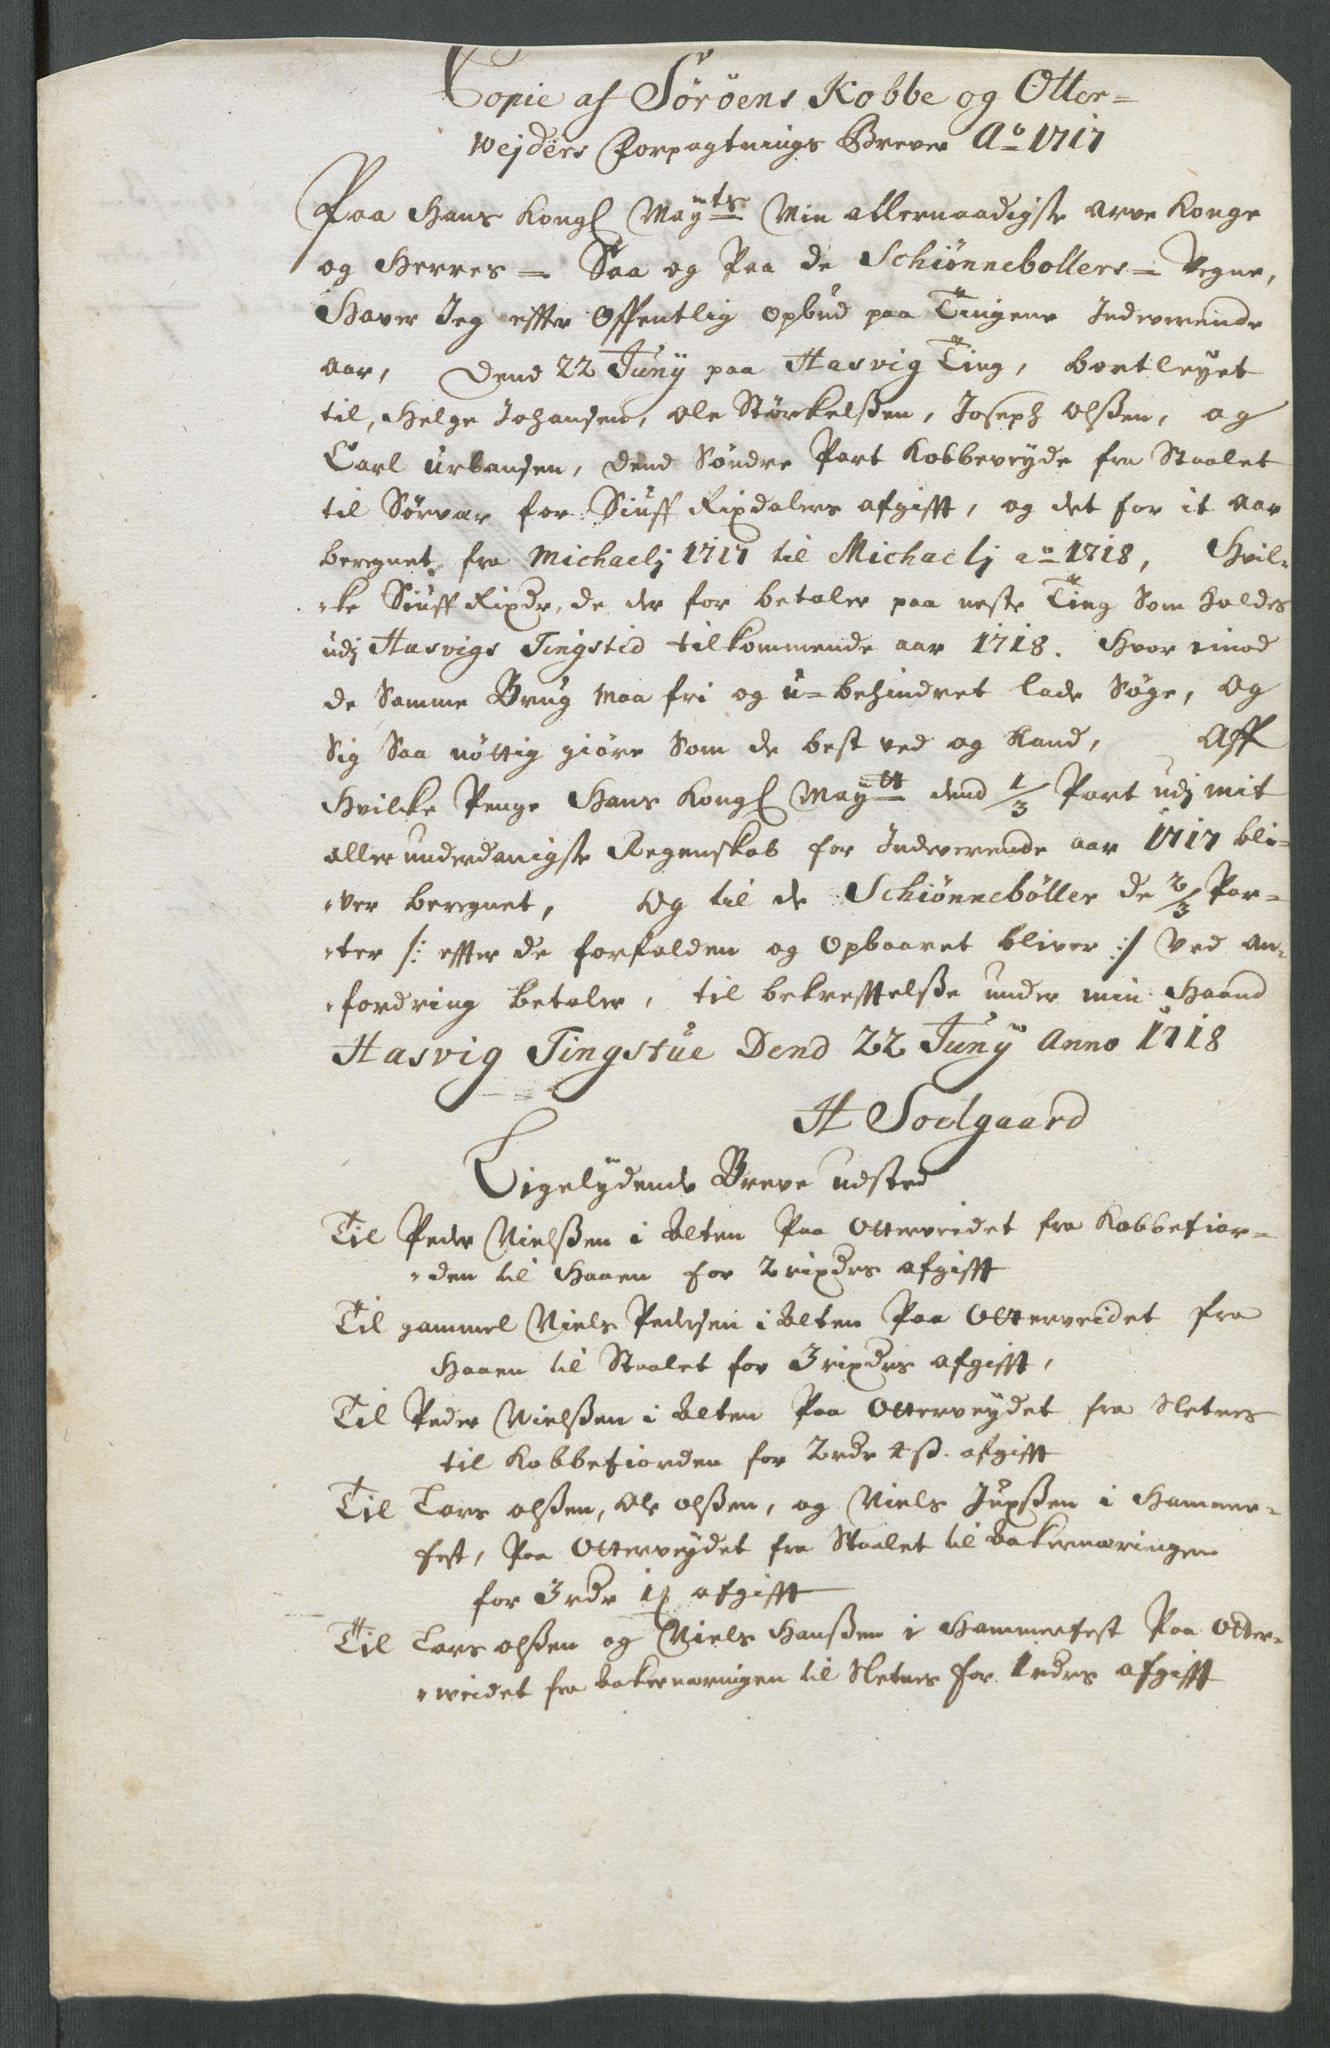 Copie af Söröens Kobbe og Otter=
wejders Forpagtnings Breve Ao 1717
Paa Hans Kongl Mayts Min allernaadigste arve Konge
og Herres = Saa og Paa de Schiönnebollers = Vegne,
Haver Jeg effter Offentlig Opbud paa Tingene Indeverende
Aar, Dend 22 Juny paa Hasvig Ting, bortleyet
til, Helge Johansen, Ole Störkelssen, Joseph Olssen, og
Carl Urbansen, dend Söndre Part Kobbeveyde fra Staalet
til Sörver for Siuff Rixdalers afgifft, og det for it Aar
beregnet fra Michaelj 1717 til Michaelj ao 1718, Hvil=
=ke Siuff Rixdr, de der for betaler paa neste Ting Som holdes
udj Hasvigs Tingsted tilkommende aar 1718. Hvor imod
de Samme Brug maa fri og u=behindret lade Söge, og
Sig Saa nöttig giöre Som de best ved og Kand, Aff
Hvilke Penge Hans Kongl Maytt dend 1/3 Part udj mit
allerunderdanigste Regenskab for Indeverende aar 1717 bli=
=ver beregnet, Og til de Schiönneböller de 2/3 Par=
=ter /: effter de forfalden og Opbaaret bliver :/ Ved An=
=fordring betaler, til bekrefftelsse under min Haand
Hasvig Tingstue Dend 22 Juny Anno 1718
H Sodgaard
Ligelydende Breve udsted
Til Peder Nielssen i Alten Paa Otterveidet fra Kobbefior=
=den til Haaen for 2 rixdrs afgifft
Til gammel Niels Pedersen i Alten Paa Otterveidet fra
Haaen til Staalet for 3 rixdrs afgifft,
Til Peder Nielssen i Alten Paa Otterveydet fra Sletnes
til Kobbefiorden for 2 rdr 4 ß. afgifft
Til Lars Olssen, Ole Olssen, og Niels Jupssen i Hammer=
fest, Paa Otterveydet fra Staalet til Bakernæringen
for 3 rdr afgifft
Til Lars Olssen og Niels Hanssen i Hammerfest Paa Otter=
=veidet fra Bakernæringen til Sletnes for 1 rdrs afgifft